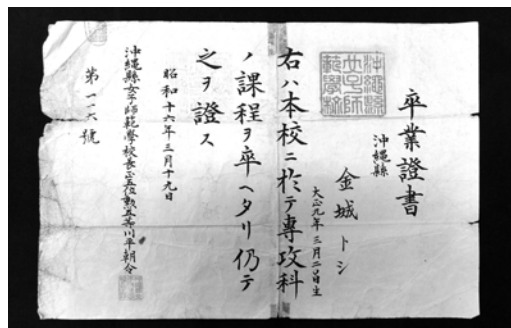 卒業證書
沖縄縣
金城トシ
大正九年三月二日生
右ハ本校ニ於テ專攻科
ノ課程ヲ卒ヘタリ仍テ
之ヲ證ス
昭和十六年三月十九日
沖縄縣女子師範學校長正五位勲五等川平朝令
第一一六號